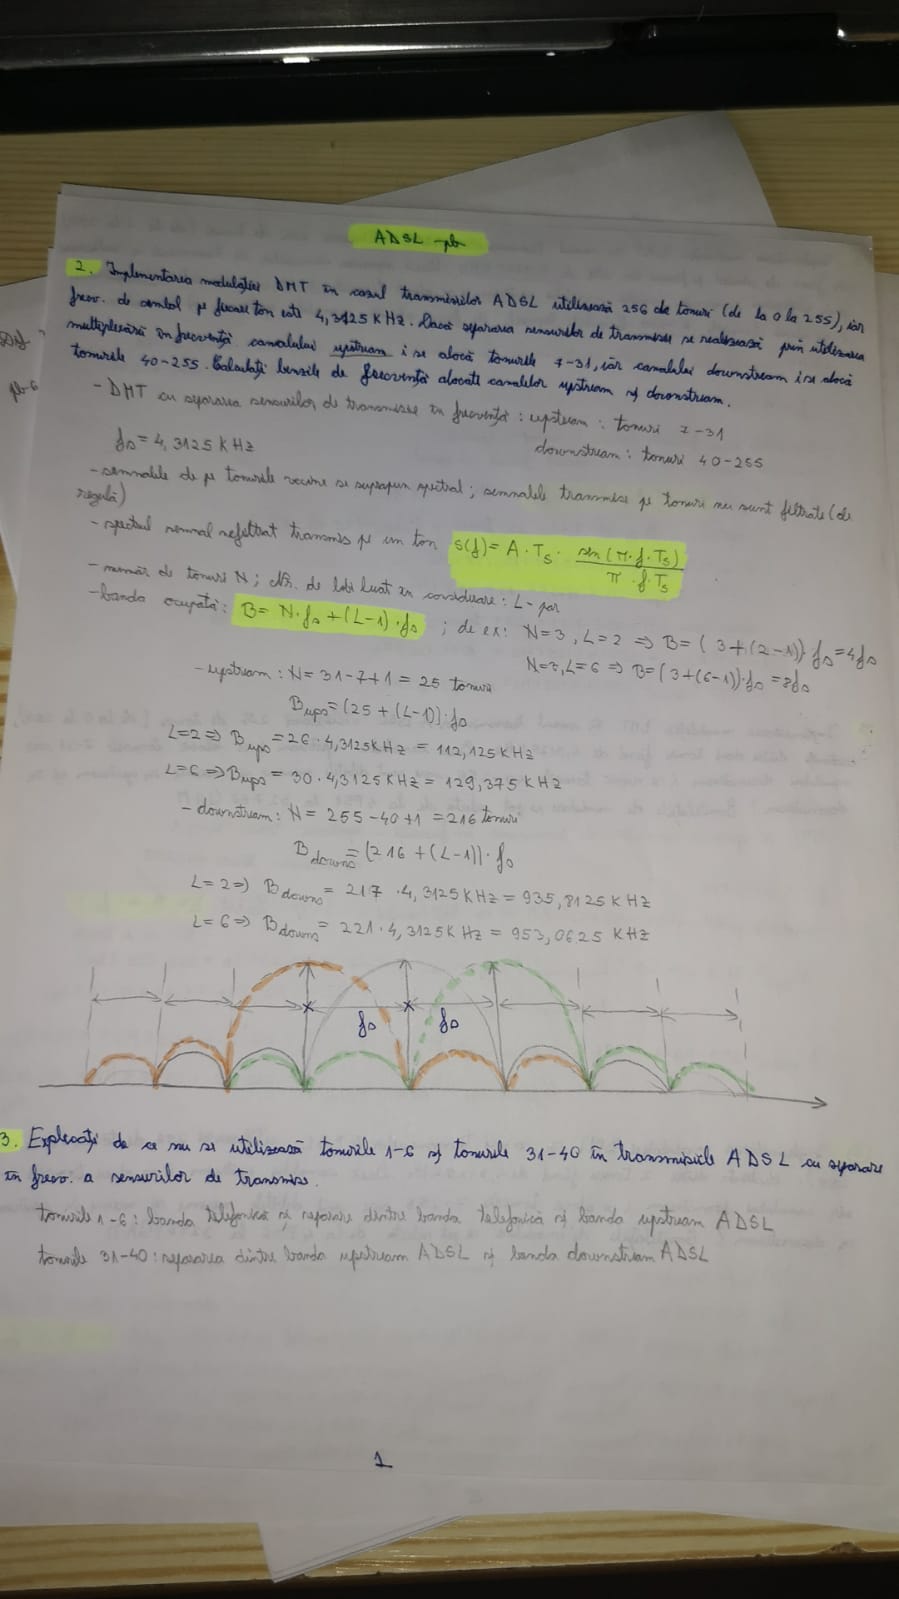 ADSL - pb
2. Implementarea modulației DMT în cazul transmisiilor ADSL utilizează 256 de tonuri (de la 0 la 255), iar
frecv. de simbol pe fiecare ton este 4,3125 KHz. Dacă separarea sensurilor de transmisie se realizează prin utilizarea
multiplexării în frecvență canalului upstream i se alocă tonurile 7-31, iar canalului downstream i se alocă
tonurile 40-255. Calculați benzile de frecvență alocate canalelor upstream și downstream.
pb-6
- DMT cu separarea sensurilor de transmisie în frecvență: upstream: tonuri 7-31
fs = 4,3125 KHz downstream: tonuri 40-255
- semnalele de pe tonurile vecine se suprapun spectral; semnalele transmise pe tonuri nu sunt filtrate (de
regulă)
- spectrul semnal nefiltrat transmis pe un ton S(f) = A · Ts · sin(π·f·Ts) / π·f·Ts
- număr de tonuri N; Nr. de lobi luat în considerare: L - par
- banda ocupată: B = N·fs + (L-1)·fs ; de ex: N=3, L=2 => B=(3+(2-1))·fs=4fs
N=3, L=6 => B=(3+(6-1))·fs=8fs
- upstream: N = 31-7+1 = 25 tonuri
Bups = (25 + (L-1))·fs
L=2 => Bups = 26 · 4,3125KHz = 112,125KHz
L=6 => Bups = 30 · 4,3125KHz = 129,375 KHz
- downstream: N = 255-40+1 = 216 tonuri
Bdowns = (216 + (L-1))·fs
L=2 => Bdowns = 217 · 4,3125KHz = 935,8125 KHz
L=6 => Bdowns = 221 · 4,3125K Hz = 953,0625 KHz
fs fs
3. Explicați de ce nu se utilizează tonurile 1-6 și tonurile 31-40 în transmisiile ADSL cu separare
în frecv. a sensurilor de transmisie.
tonurile 1-6: banda telefonică și separare dintre banda telefonică și banda upstream ADSL
tonurile 31-40: separarea dintre banda upstream ADSL și banda downstream ADSL
1